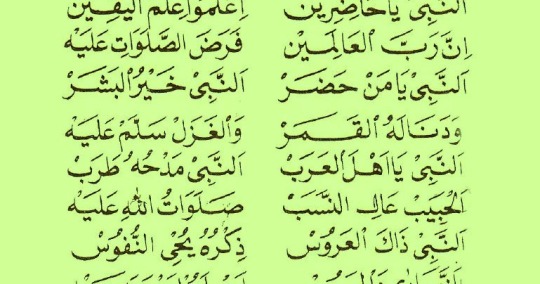 اَلنَّبِىْ يَا حَاضِرِيْنَ اِعْلَمُوْا عِلْمَ الْيَقِيْنِ
اِنَّ رَبَّ الْعَالَمِيْنَ فَرَضَ الصَّلَوَاتِ عَلَيْهِ
اَلنَّبِىْ يَا مَنْ حَضَرْ اَلنَّبِىْ خَيْرُ الْبَشَرْ
وَدَنَا لَهُ الْقَمَرْ وَالْغَزَلْ سَلَّمْ عَلَيْهِ
اَلنَّبِىْ يَا اَهْلَ الْعَرَبْ اَلنَّبِىْ مَدْحُهُ طَرَبْ
اَلْحَبِيْبْ عَالِى النَّسَبْ صَلَوَاتُ اللهِ عَلَيْهِ
اَلنَّبِىْ ذَاكَ الْعَرُوْسْ ذِكْرُهُ يُحْيِى النُّفُوْسْ